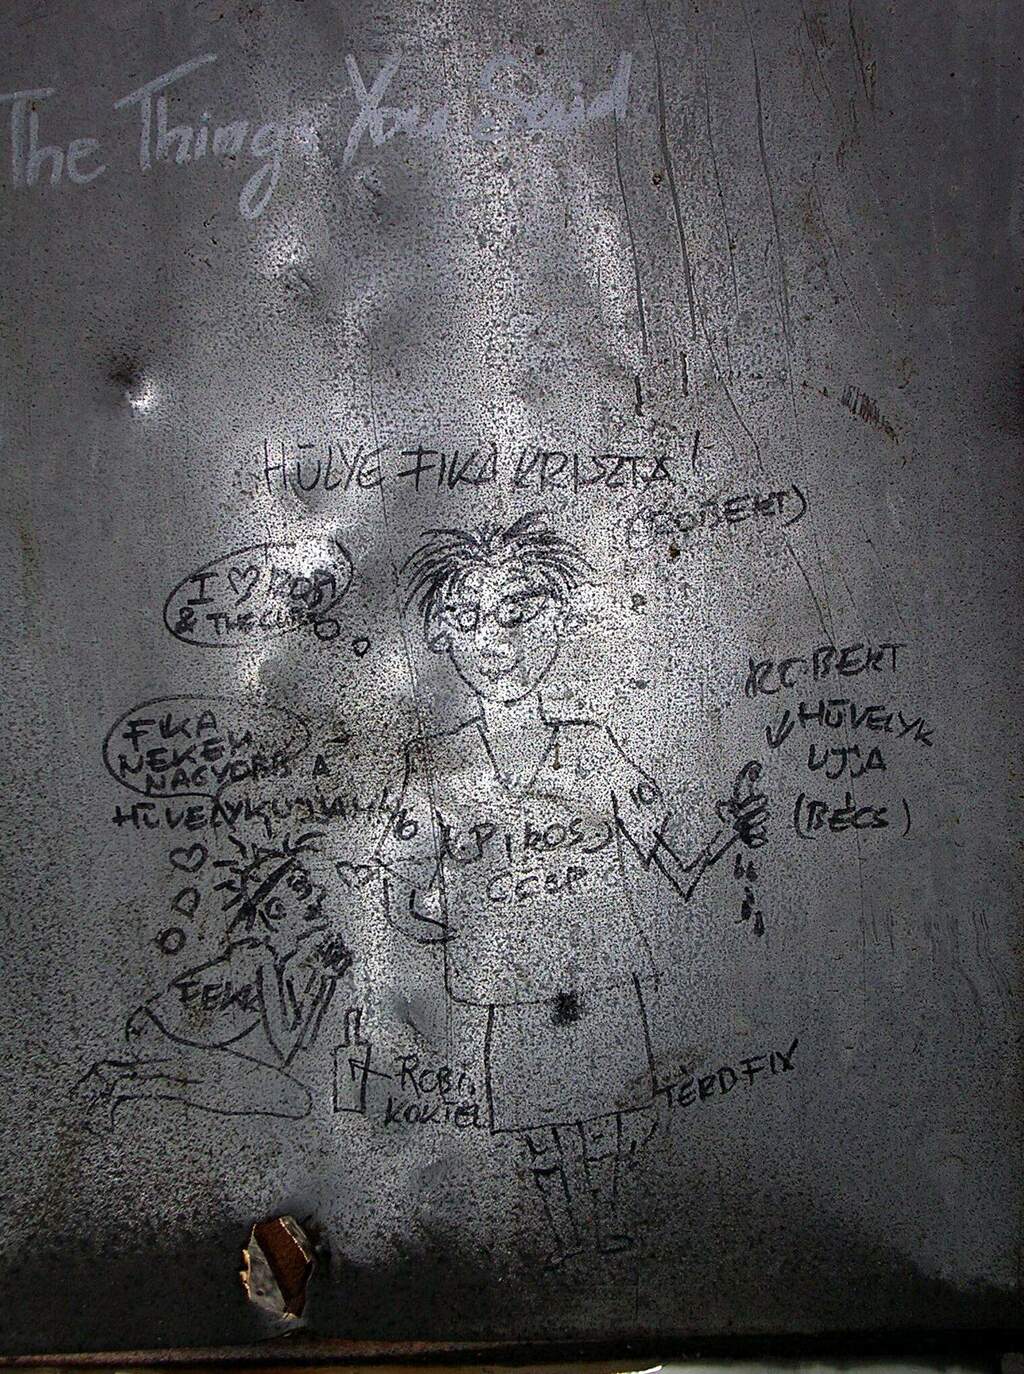 The Things You Said
HÜLYE FIKA KRISZTA!
(ROBERT)
I ♡ ROBI
& THE CURE
ROBERT
HÜVELYK
UJJA
(BÉCS)
FIKA
NEKEM
NAGYOBB A
10
6
PIROS
CSEPP
FEKA
ROBI
KOKTÉL
TÉRDFIX